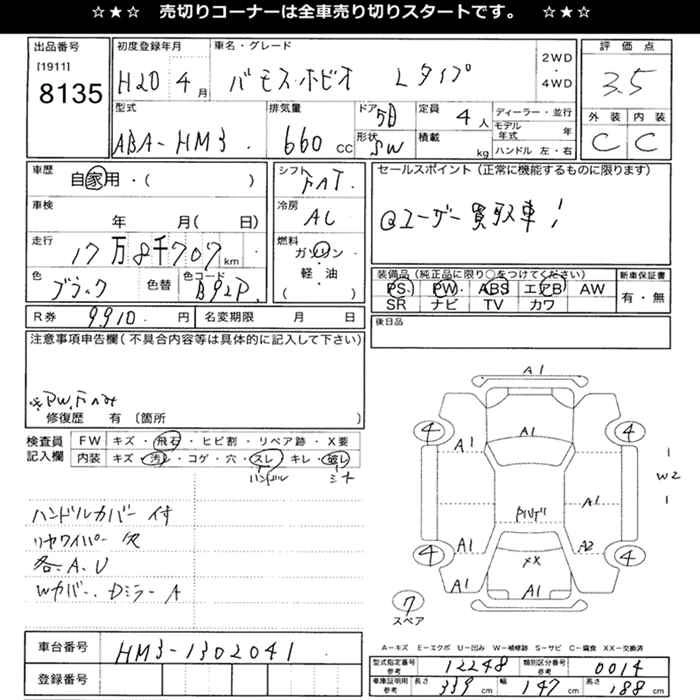 ☆★☆ 売切りコーナーは全車売り切りスタートです。 ☆★☆
出品番号
[1911]
8135
初度登録年月
H20 4月
車名・グレード
バモスホビオ Lタイプ
2WD
・
4WD
評価点
3.5
外装 内装
C C
型式
ABA-HM3
排気量
660 cc
ドア 5D
形状 SW
定員 4人
積載 kg
ディーラー・並行
モデル年式 年
ハンドル 左・右
車歴
自家用・( )
シフト
FAT
セールスポイント(正常に機能するものに限ります)
@ユーザー買取車!
車検
年 月( 日)
冷房
AC
走行
17万8千707km
燃料
ガソリン
軽・油
( )
色
ブラック
色替
色コード
B92P
装備品(純正品に限り○をつけてください)
PS PW ABS エアB AW
SR ナビ TV カワ
新車保証書
有・無
R券 9910 円
名変期限 月 日
後日品
注意事項申告欄(不具合内容等は具体的に記入して下さい)
修復歴 有 〔箇所 〕
検査員
記入欄
FW キズ・飛石・ヒビ割・リペア跡・X要
内装 キズ・汚レ・コゲ・穴・スレ・キレ・破レ
ハンドル シート
ハンドルカバー付
リヤワイパー欠
各.A.U
Wカバー.Dミラー A
A1
4 4
A1 A1
W2
A1
A1 A2
4 4
XX
A1 A1
7
スペア
A1
A-キズ E-エクボ U-凹み W-補修跡 S-サビ C-腐食 XX-交換済
車台番号 HM3-1302041
登録番号
型式指定番号 参考 12248
類別区分番号 参考 0014
車庫証明用 参考 長さ 339 cm 幅 147 cm 高さ 188 cm